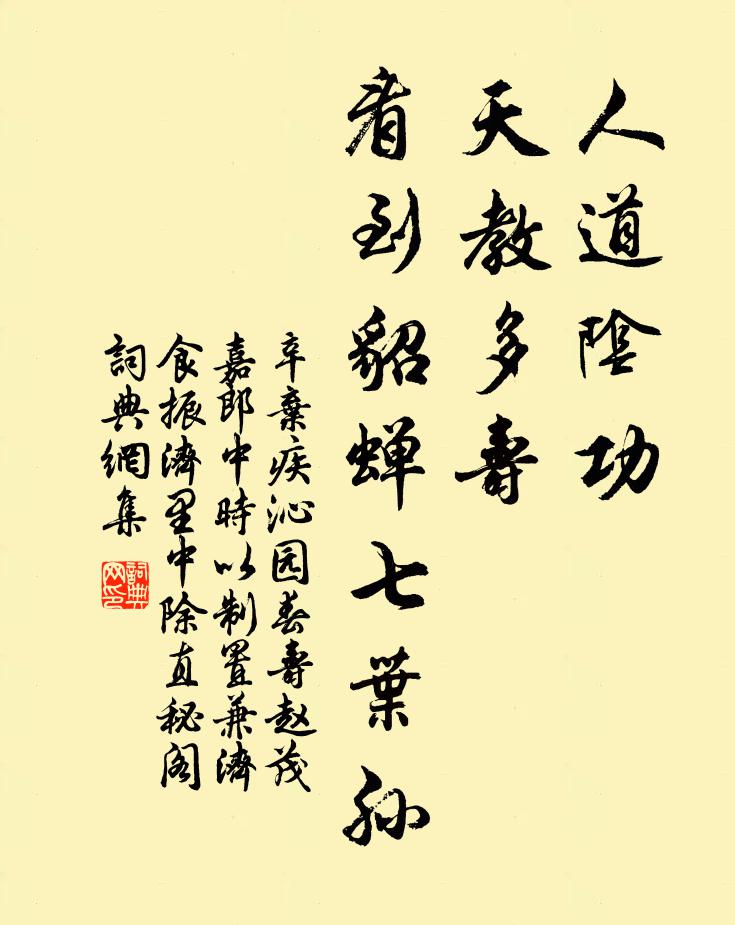 人道陰功
天教多壽
看到貂蟬七葉孫
辛棄疾沁园春壽赵茂
嘉郎中時以制置兼濟
食振濟里中除直秘阁
詞典網集
詞典网印